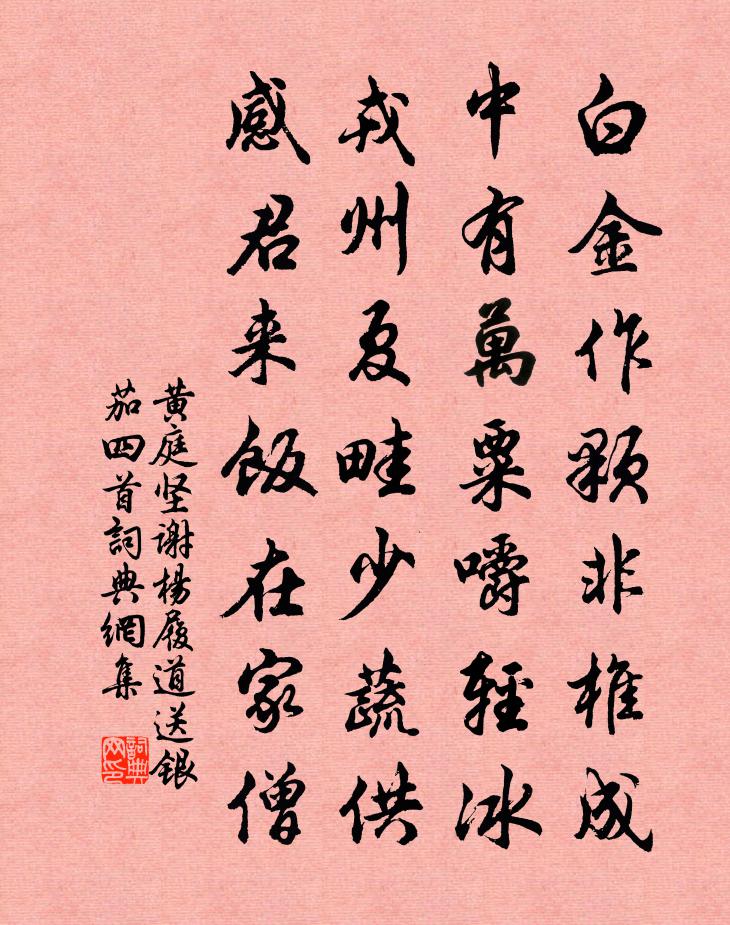 白金作顆非椎成
中有萬粟嚼輕冰
戎州夏畦少蔬供
感君来飯在家僧
黄庭坚谢杨履道送银
茄四首詞典網集
詞典网印